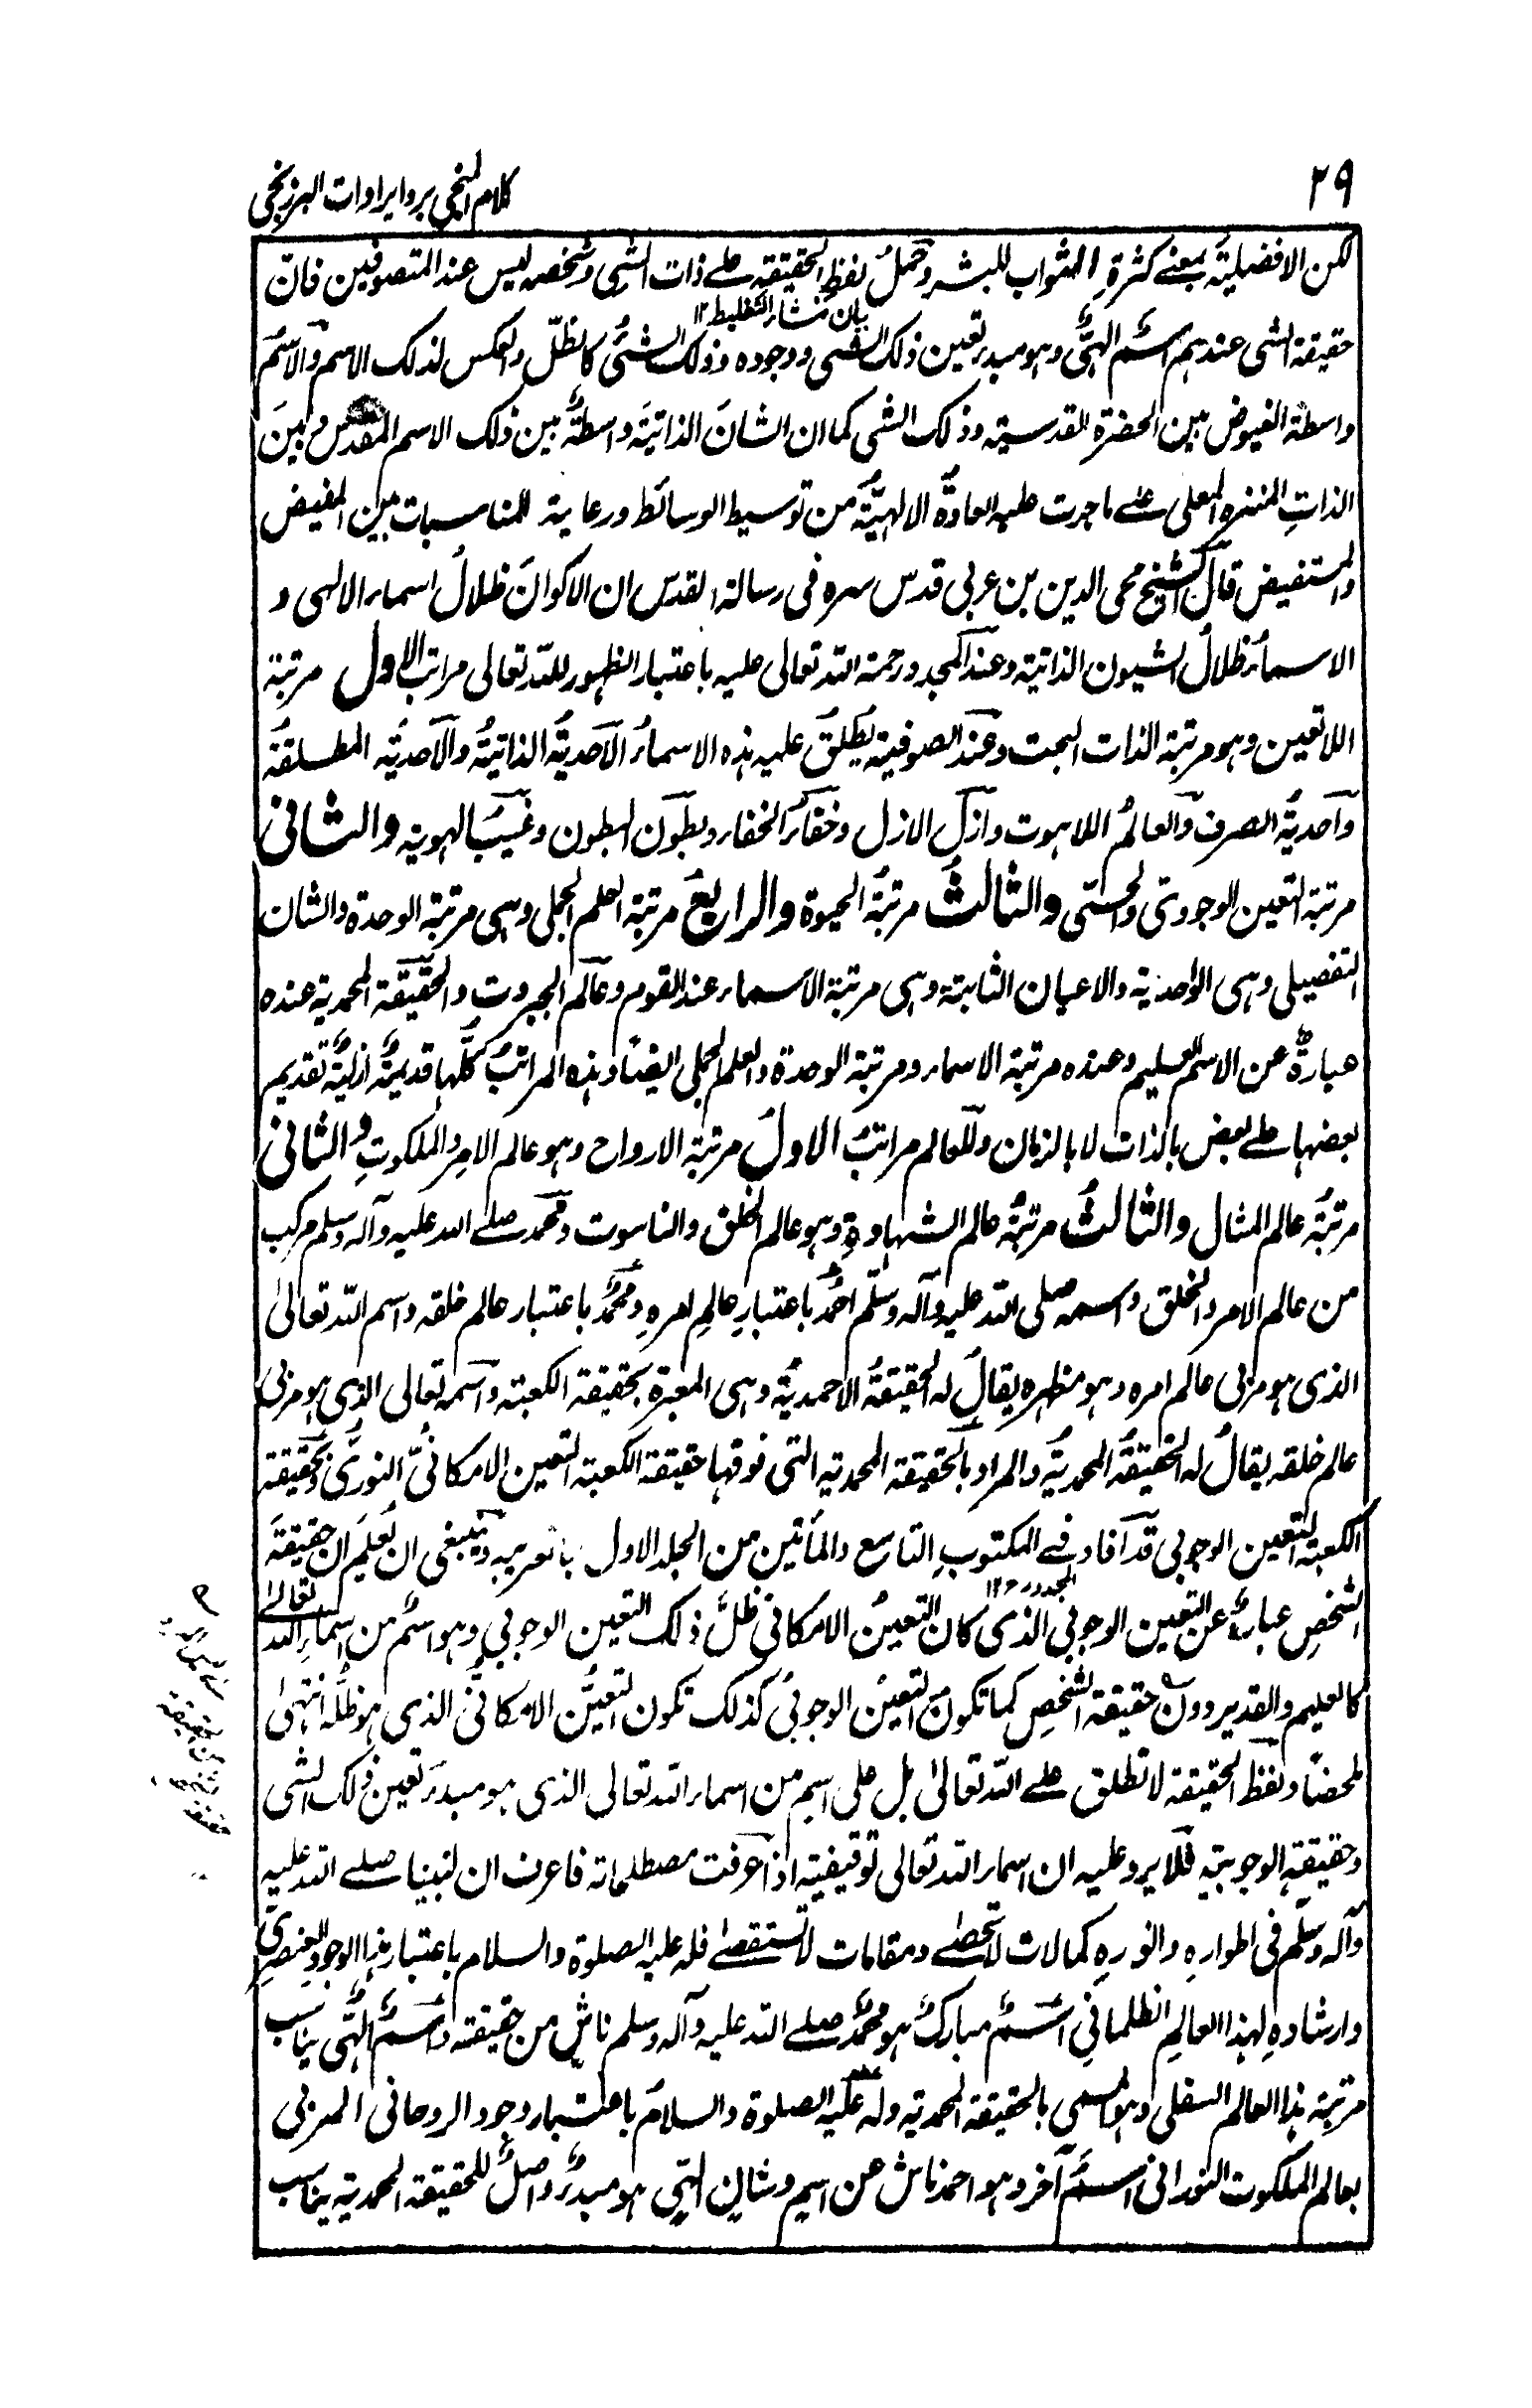 ٢٩
كلام المنجي برد ايرادات البرزنجي
لكن الافضلية بمعنے كثرةِ الثواب للبشر وحملُ لفظِ الحقيقةِ علے ذات الشئ وشخصه ليس عند المتصوفين فانّ
بيان منشاء التغليط ١٢
حقيقة الشى عندهم اسمٌ الهىٌّ وهو مبدء تعين ذلك الشى ووجوده وذلك الشئُ كالظلّ والعكس لذلك الاسم والاسمُ
واسطة الفيوض بين الحضرة القدسية وذلك الشى كما ان الشانَ الذاتيةَ واسطةٌ بين ذلك الاسم المقدس وبين
الذاتِ المنزه المعلى علے ما جرت عليه العادةُ الالهيّةُ من توسيط الوسائط ورعاية للمناسبات بين المفيض
والمستفيض قال الشيخ محى الدين بن عربى قدس سره فى رسالة القدس ان الاكوانَ ظلالُ اسماء الالهى و
الاسماءُ ظلالُ الشيون الذاتية وعند المجدد رحمة الله تعالى عليه باعتبار الظهور لله تعالى مراتب الاول مرتبة
اللاتعين وهو مرتبة الذات البحت وعند الصوفية يُطلقُ عليه هذه الاسماءُ الاحديةُ الذاتيةُ والاحديةُ المطلقةُ
واحديةُ الصرف والعالمُ اللاهوت وازل الازل وخفاءُ الخفاء وبطون البطون وغيبُ الهوية والثانى
مرتبة التعين الوجودى والحبى والثالثُ مرتبةُ الحيوة والرابعُ مرتبة العلم الجملى وهى مرتبة الوحدة والشان
التفصيلى وهى الواحدية والاعيان الثابتة وهى مرتبة الاسماء عند القوم وعالم الجبروت والحقيقة المحمدية عنده
عبارةٌ عن الاسم العليم وعنده مرتبة الاسماء ومرتبة الوحدة والعلم الجملى ايضًا وهذه المراتبُ كلُّها قديمةٌ ازليةٌ تقديم
بعضها علے بعض بالذات لا بالزمان وللعالم مراتبُ الاولُ مرتبة الارواح وهو عالم الامرِ والملكوتِ والثانى
مرتبةُ عالم المثال والثالثُ مرتبةُ عالم الشهادةِ وهو عالم الخلق والناسوت ومحمد صلے الله عليه وآله وسلم مركب
من عالم الامر والخلق واسمه صلى الله عليه وآله وسلّم احمدُ باعتبارِ عالمِ امرهِ ومحمّدٌ باعتبار عالم خلقه واسم الله تعالىٰ
الذى هو مربى عالم امره وهو مظهره يقالُ له الحقيقةُ الاحمديةُ وهى المعبرة بحقيقة الكعبة واسمه تعالى الذى هو مربى
عالم خلقه يقالُ له الحقيقةُ المحمديةُ والمراد بالحقيقة المحمدية التى فوقها حقيقة الكعبة التعين الامكانىُّ النورىُّ وبحقيقة
الكعبة التعين الوجوبى قد افاد فے المكتوبِ التاسع والمأتين من الجلد الاول بالعربيه وينبغى ان يُعلمَ ان حقيقةَ
المجدد رح ١٢
الشخصِ عبارةٌ عن التعين الوجوبى الذى كان التعينُ الامكانى ظلَّ ذلك التعين الوجوبى وهو اسمٌ من اسماءِ الله تعالىٰ
كالعليم والقدير ودون حقيقة الشخصِ كما تكون التعينُ الوجوبىُ كذلك تكون التعيُّن الامكانىُّ الذى هو ظلُّه انتهىٰ
ملخصًا ولفظ الحقيقة لا تطلق علے الله تعالىٰ بل على اسمٍ من اسماء الله تعالى الذى هو مبدءَ تعين ذلك الشى
وحقيقتِه الوجوبيةِ فلا يرد عليه ان اسماء الله تعالى توقيفية اذا عرفت مصطلحاته فاعرف ان لنبينا صلے الله عليه
وآله وسلّم فى اطوارهِ وانورهِ كمالات لا تحصےٰ ومقامات لا تستقصےٰ فله عليه الصلوة والسلام باعتبار هذا الوجودِ العنصرىِّ
وارشادهِ لهذا العالمِ الظلمانىِ اسمٌ مباركٌ هو محمّدٌ صلے الله عليه وآله وسلم ناشٍ من حقيقته واسمٌ الهٰىٌ يناسب
مرتبة هذا العالم السفلى وهو المسمى بالحقيقة المحمدية وله عليه الصلوة والسلام باعتبار وجود الروحانى المربى
بعالم الملكوت النورانى اسمٌ آخر وهو احمد ناش عن اسمٍ وشانٍ الهىٍ هو مبدءٌ واصلٌ للحقيقة المحمدية يناسب